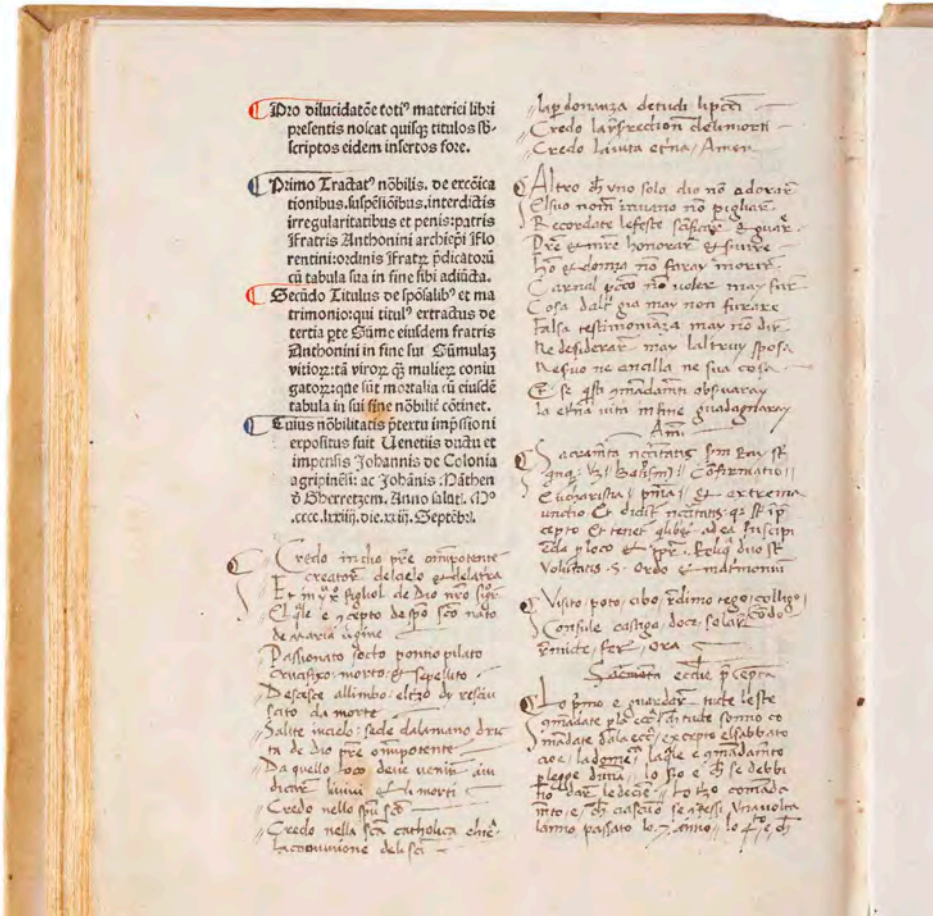 Pro dilucidatōe totiꝰ materiei libri
presentis noscat quisqꝫ titulos sb-
scriptos eidem insertos fore.
Primo Tractatꝰ nōbilis. de excōica
tionibus.suspēsiōibus.interdictis
irregularitatibus et penis:patris
Fratris Anthonini archiepi Flo
rentini:ordinis Fratꝝ p̄dicatorū
cū tabula sua in fine sibi adiūcta.
Secūdo Titulus de spōsalibꝰ et ma
trimonio:qui titulꝰ extractus de
tertia pte Sūme eiusdem fratris
Anthonini in fine sui Sūmulaꝫ
vitioꝝ:tā viroꝝ qꝫ mulieꝝ coniu
gatoꝝ:que sūt mortalia cū eiusdē
tabula in sui fine nōbilit̄ cōtinet.
Cuius nōbilitatis p̄textu imp̄ssioni
expositus fuit Venetiis ductu et
impensis Johannis de Colonia
agripinēsi: ac Johānis :Māthen
Gherretzem. Anno saluti. Mº
.cccc.lxxiiij.die.xxiij.Septēbr.
Credo in dio pr̄e omīpotente
creatōr del cielo et dela t̄ra
Et in figliol de Dio nr̄o
El qle e ɔcepto de spō scō nato
de maria ūgine
Passionato socto pontio pilato
crucifixo: morto: et sepellito
Descise allimbo: el tzo dy resciu
scito da morte
Salite in cielo: sede dala mano dric
ta de Dio pr̄e omīpotente
Da quello loco deve venir̄ a iu
dicar̄ li vivi et li morti
Credo nello spū scō
Credo nella scā catholica chiē
la comunione deli scī
la perdonanza de tucti li pccī
Credo la resrection deli morti
Credo la vita et̄na / Amen
Altro ch̄ uno solo dio nō adorar̄
El suo nom̄ in vano nō pigliar̄
Recordate le feste sc̄ificar̄ et guar
Pr̄e et mr̄e honorar̄ et
hō et donna nō faray morir̄
Carnal pccō nō voler may far
Cosa dalt gia may non furare
Falsa testimoniāza may nō dir
Ne desiderar̄ may laltruy sposa
Ne suo ne ancilla ne sua cosa
Et se q̄sti ɔmādamīti obs̄varay
la et̄na vita in fine guadagnaray
Am̄
Sacramīta
Batism Confirmatio
Eucharistia / pnīa / et extrema
unctio Et
cepto Et tenet̄ ad ea suscipi
ēda p loco et tpr̄. Reliq duo st̄
Volūtatis .s. Ordo et matrimoniū
Visito / poto / cibo / redimo tego / colligo / cōdo
Consule castiga / doce / solar
remicte / fer / ora
ecclie p̄cepta
Lo p̄mo e guardar̄ tucte le feste
ɔmādate p la ecc̄ ch̄ tucte sonno co
mādate dala ecc̄ / excepto el sabbato
cioe / la dome / la qle e ɔmādamīto
p legge divīa / lo e ch̄ se debbi
no dar̄ le decie / Lo tzo comāda
mīto / e / ch̄ ciascuō se ɔfessi una volta
lanno passato lo .7. anno / lo 4to / e / ch̄